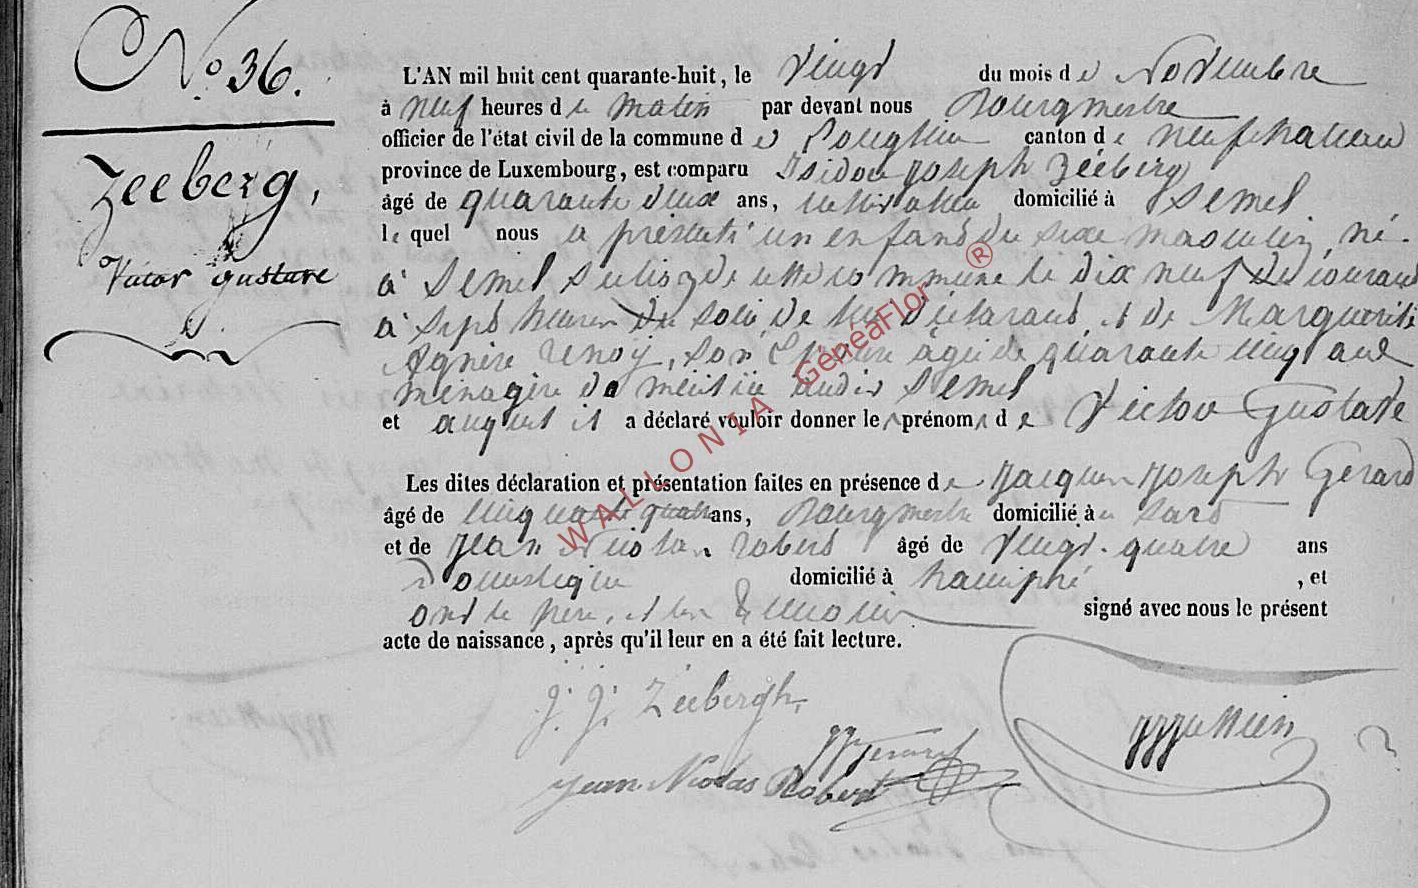 N° 36.
Zeeberg,
Victor Gustave
L'AN mil huit cent quarante-huit, le Vingt du mois de Novembre
à neuf heures du matin par devant nous Bourgmestre
officier de l'état civil de la commune de canton de neufchateau
province de Luxembourg, est comparu Isidore Joseph Zéeberg
âgé de quarante deux ans, cultivateur domicilié à Semel
le quel nous a présenté un enfant du sexe masculin, né
à Semel section de cette commune le dix neuf du courant
à sept heures du soir, de lui déclarant, et de Marguerite
Agnès son Epouse âgée de quarante ans
ménagère de audit Semel
et auquel il a déclaré vouloir donner les prénoms de Victor Gustave
Les dites déclaration et présentation faites en présence de Jacques Joseph Gérard
âgé de cinquante quatre ans, Bourgmestre domicilié à Sart
et de Jean Nicolas Robert âgé de vingt-quatre ans
Domestique domicilié à hamipré , et
ont le père, et les témoins signé avec nous le présent
acte de naissance, après qu'il leur en a été fait lecture.
J. J. Zéebergh,
JJGerard
Jean Nicolas Robert
WALLONIA GénéaFlor ®